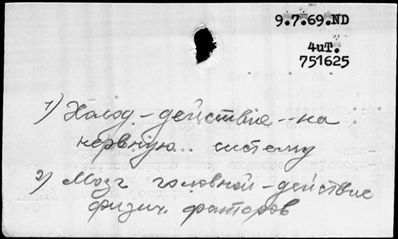 9.7.69.ND
4иТ.
751625
1) Холод - действие - на
нервную .. систему
2) Мозг головной - действие
физич. факторов